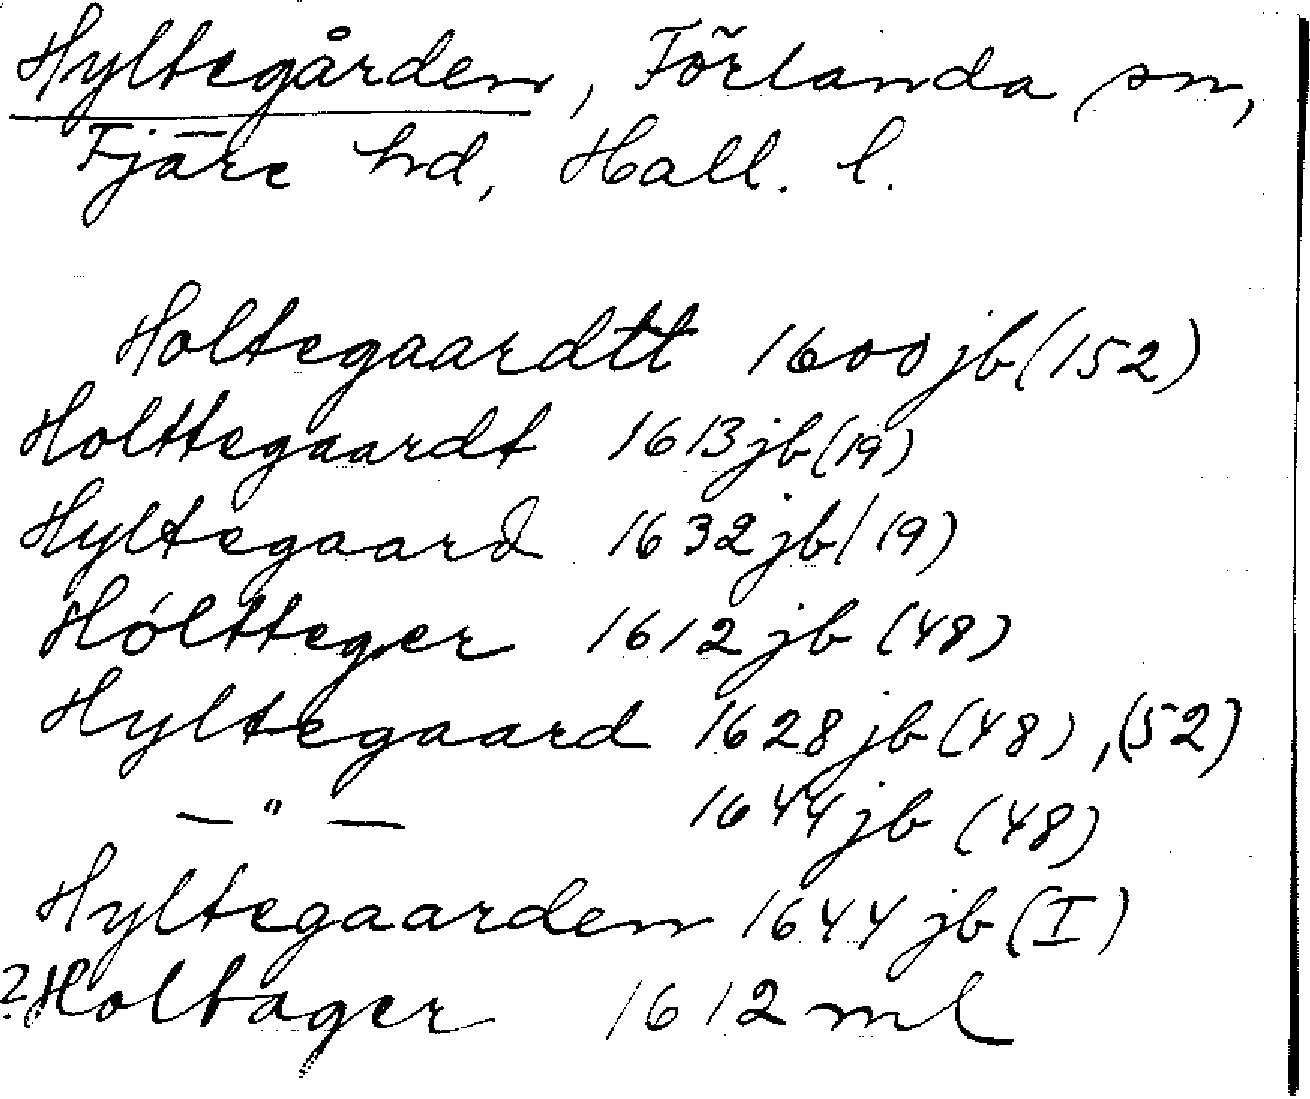 Hyltegården, Förlanda sn,
Fjäre hd, Hall. l.
Holtegaardtt 1600 jb (152)
Holttegaardt 1613 jb (19)
Hyltegaard 1632 jb (19)
Hóltteger 1612 jb (48)
Hyltegaard 1628 jb (48), (52)
— " — 1644 jb (48)
Hyltegaarden 1644 jb (I)
? Holtager 1612 ml